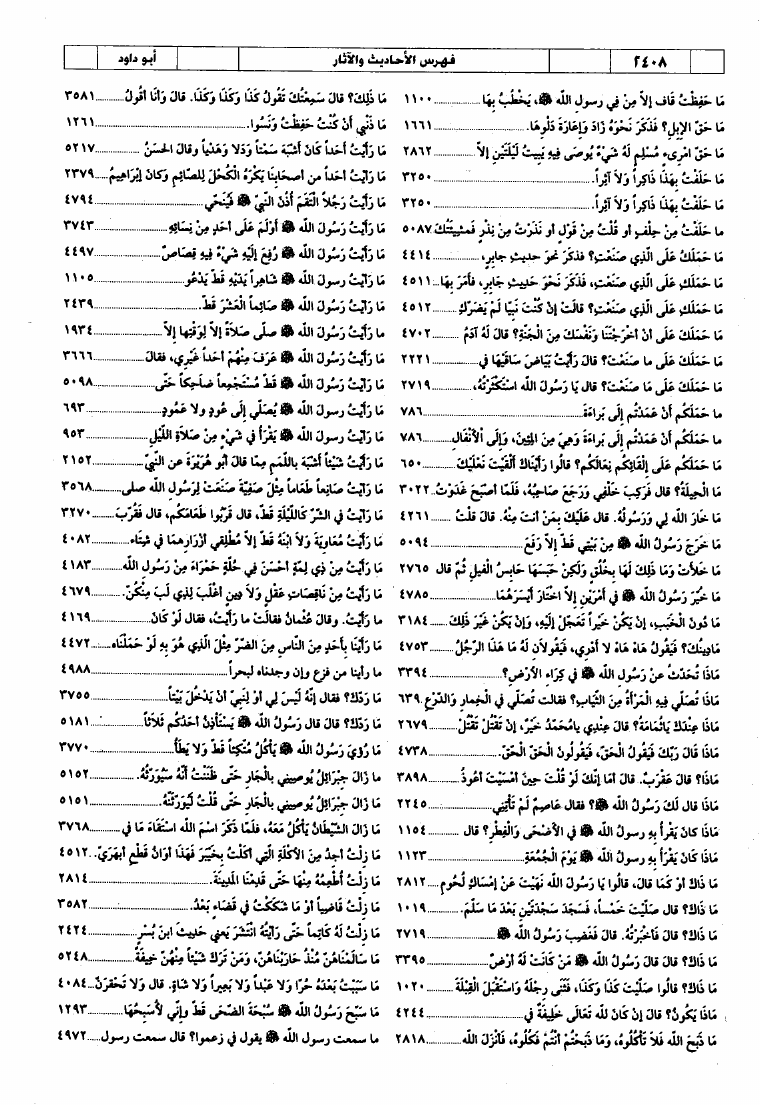 ٢٤٠٨
فهرس الأحاديث والآثار
أبو داود
مَا حَفِظْتُ قاف إلاَّ مِنْ فِي رسولِ الله ﷺ، يَخْطُبُ بِهَا ........ ١١٠٠
مَا حَقّ الإِبِلِ؟ فَذَكَرَ نَحْوَهُ زَادَ وَإعَارَةَ دَلْوِهَا. ........ ١٦٦١
مَا حَقّ امْرِىءٍ مُسْلِمٍ لَهُ شَيْءٌ يُوصَى فِيهِ يَبِيتُ لَيْلَتَيْنِ إلاَّ ........ ٢٨٦٢
مَا حَلَفْتُ بِهَذَا ذَاكِراً وَلاَ آثِراً. ........ ٣٢٥٠
مَا حَلَفْتُ بِهَذَا ذَاكِراً وَلاَ آثِراً. ........ ٣٢٥٠
ما حَلَفْتُ مِنْ حِلْفٍ أو قُلْتُ مِنْ قَوْلٍ أو نَذَرْتُ مِنْ نِذْرٍ فَمَشِيئَتُكَ ٥٠٨٧
مَا حَمَلَكَ عَلَى الَّذِي صَنَعْتِ؟ فذكَرَ نحوَ حديثِ جابِرٍ، ........ ٤٤١٤
مَا حَمَلَكِ عَلَى الَّذِي صَنَعْتِ، فَذَكَرَ نَحْوَ حَدِيثِ جَابِرٍ، فأمَرَ بِهَا ... ٤٥١١
مَا حَمَلَكِ عَلَى الَّذِي صَنَعْتِ؟ قالَتْ إنْ كُنْتَ نَبِيًّا لَمْ يَضُرّكَ ........ ٤٥١٢
مَا حَمَلَكَ عَلَى أنْ أخْرَجْتَنَا وَنَفْسَكَ مِنَ الْجَنَّةِ؟ قالَ لَهُ آدَمُ ........ ٤٧٠٢
مَا حَمَلَكَ عَلَى ما صَنَعْتَ؟ قالَ رَأيْتُ بَيَاضَ سَاقَيْهَا في ........ ٢٢٢١
مَا حَمَلَكَ عَلَى مَا صَنَعْتَ؟ قال يَا رَسُولَ الله اسْتَكْثَرْتُهُ، ........ ٢٧١٩
ما حَمَلَكُم أنْ عَمَدْتُم إلَى بَرَاءَةَ ........ ٧٨٦
ما حَمَلَكُم أنْ عَمَدْتُم إلَى بَرَاءَةَ وَهِيَ مِنَ المِئِينَ، وَإلَى الأنْفَالِ ........ ٧٨٦
مَا حَمَلَكُم عَلَى إلْقَائِكُم نِعَالَكُم؟ قالُوا رَأيْنَاكَ ألْقَيْتَ نَعْلَيْكَ ........ ٦٥٠
مَا الْحِيلَةُ؟ قال فَرَكِبَ خَلْفِي وَرَجَعَ صَاحِبُهُ، فَلَمَّا أصْبَحَ غَدَوْتُ .. ٣٠٢٢
مَا خَارَ الله لِي وَرَسُولُهُ. قال عَلَيْكَ بِمَنْ أنت مِنْهُ. قالَ قلْتُ ........ ٤٢٦١
مَا خَرَجَ رَسُولُ الله ﷺ مِنْ بَيْتِي قَطّ إلاَّ رَفَعَ ........ ٥٠٩٤
مَا خَلأَت وَمَا ذَلِكَ لَهَا بِخُلُقٍ وَلَكِنْ حَبَسَهَا حَابِسُ الْفِيلِ ثُمّ قال ٢٧٦٥
مَا خُيِّرَ رَسُولُ الله ﷺ في أمْرَيْنِ إلاَّ اخْتَارَ أيْسَرَهُمَا ........ ٤٧٨٥
مَا دُونَ الْخَبَبِ، إنْ يَكُنْ خَيْراً تَعَجّلَ إلَيْهِ، وَإنْ يَكُنْ غَيْرَ ذَلِكَ ........ ٣١٨٤
مَادِينُكَ؟ فَيَقُولُ هَاهْ هَاهْ لا أدْرِي، فَيَقُولاَنِ لَهُ مَا هَذَا الرّجُلُ ........ ٤٧٥٣
مَاذَا تُحَدّثُ عنْ رَسُولِ الله ﷺ في كِرَاءِ الأرْضِ؟ ........ ٣٣٩٤
مَاذَا تُصَلّي فِيهِ المَرْأةُ مِنَ الثّيَابِ؟ فقالت تُصَلّي في الْخِمارِ وَالدّرْعِ ٦٣٩
مَاذَا عِنْدَكَ يَاثُمَامَةُ؟ قالَ عِنْدِي يامُحَمّدُ خَيْرٌ، إنْ تَقْتُلْ تَقْتُلْ ........ ٢٦٧٩
مَاذَا قَالَ رَبّكَ فَيَقُولُ الْحَقّ، فَيَقُولُونَ الْحَقّ الْحَقّ. ........ ٤٧٣٨
مَاذَا؟ قالَ عَقْرَبٌ. قالَ أمَا إنّكَ لَوْ قُلْتَ حِينَ أمْسَيْتَ أعُوذُ ........ ٣٨٩٨
مَاذَا قال لَكَ رَسُولُ الله ﷺ؟ فقال عَاصِمٌ لَمْ تَأْتِنِي ........ ٢٢٤٥
مَاذَا كان يَقْرأُ بِهِ رسولُ الله ﷺ في الأضْحَى وَالْفِطْرِ؟ قال ........ ١١٥٤
مَاذَا كَانَ يَقْرَأُ بِهِ رسولُ الله ﷺ يَوْمَ الْجُمُعَةِ ........ ١١٢٣
مَا ذَاكَ أوْ كَمَا قالَ، قالُوا يَا رَسُولَ الله نَهَيْتَ عَنْ إمْسَاكِ لُحُومِ ........ ٢٨١٢
مَا ذَاكَ؟ قال صَلّيْتَ خَمْساً، فَسَجَدَ سَجْدَتَيْنِ بَعْدَ مَا سَلّمَ. ........ ١٠١٩
مَا ذَاكَ؟ قالَ فَأخْبَرْتُهُ. قالَ فَغَضِبَ رَسُولُ الله ﷺ ........ ٢٧١٩
مَا ذَاكَ؟ قالَ قالَ رَسُولُ الله ﷺ مَنْ كَانَتْ لَهُ أرْضٌ ........ ٣٣٩٥
مَا ذَاكَ؟ قالُوا صَلّيْتَ كَذَا وَكَذَا، فَثَنَى رِجْلَهُ وَاسْتَقْبَلَ الْقِبْلَةَ ........ ١٠٢٠
مَاذَا يَكُونُ؟ قالَ إنْ كَانَ لله تَعَالَى خَلِيفَةٌ في ........ ٤٢٤٤
مَا ذَبَحَ الله فَلاَ تَأْكُلُوهُ، وَمَا ذَبَحْتُمْ أنْتُمْ فَكُلُوهُ، فأَنْزَلَ الله ........ ٢٨١٨
مَا ذَلِكَ؟ قالَ سَمِعْتُكَ تَقُولُ كَذَا وَكَذَا. قالَ وَأنَا أقُولُ ........ ٣٥٨١
مَا ذَنْبِي أنْ كُنْتُ حَفِظْتُ وَنَسُوا. ........ ١٢٦١
مَا رَأيْتُ أحَداً كَانَ أشْبَهَ سَمْتاً وَدَلاّ وَهَدْياً وقالَ الحَسَنُ ........ ٥٢١٧
مَا رَأيْتُ أحَداً من أصحابِنَا يَكْرَهُ الْكُحْلَ لِلصّائِمِ وكانَ إبْرَاهِيمُ ........ ٢٣٧٩
مَا رَأيْتُ رَجُلاً الْتَقَمَ أُذُنَ النّبيّ ﷺ فَيُنَحّي ........ ٤٧٩٤
مَا رَأيْتُ رَسُولَ الله ﷺ أوْلَمَ عَلَى أحَدٍ مِنْ نِسَائِهِ ........ ٣٧٤٣
مَا رَأيْتُ رَسُولَ الله ﷺ رُفِعَ إلَيْهِ شَيْءٌ فِيهِ قِصَاصٌ ........ ٤٤٩٧
مَا رَأيْتُ رسولَ الله ﷺ شاهِراً يَدَيْهِ قَطّ يَدْعُو ........ ١١٠٥
مَا رَأيْتُ رَسُولَ الله ﷺ صَائِماً الْعَشْرَ قَطّ. ........ ٢٤٣٩
ما رَأيْتُ رَسُولَ الله ﷺ صلّى صَلاَةً إلاّ لِوَقْتِهَا إلاّ ........ ١٩٣٤
مَا رَأيْتُ رَسُولَ الله ﷺ عَرَفَ مِنْهُمْ أحَداً غَيْرِي، فقالَ ........ ٣٦٦٦
مَا رَأيْتُ رَسُولَ الله ﷺ قَطّ مُسْتَجْمِعاً ضَاحِكاً حَتّى ........ ٥٠٩٨
مَا رَأيْتُ رسولَ الله ﷺ يُصَلّي إلَى عُودٍ ولا عَمُودٍ ........ ٦٩٣
مَا رَأيْتُ رسولَ الله ﷺ يَقْرَأُ فِي شَيْءٍ مِنْ صَلاَةِ اللّيْلِ ........ ٩٥٣
مَا رَأيْتُ شَيْئاً أشْبَهَ بِاللّمَمِ مِمّا قالَ أبُو هُرَيْرَةَ عن النّبيّ ........ ٢١٥٢
مَا رَأيْتُ صَانِعاً طَعَاماً مِثْلَ صَفِيّةَ صَنَعَتْ لِرَسُولِ الله صلى ........ ٣٥٦٨
مَا رَأيْتُ في الشّرّ كَاللّيْلَةِ قَطّ، قال قَرّبُوا طَعَامَكُم، قال فَقُرّبَ ........ ٣٢٧٠
مَا رَأيْتُ مُعَاوِيَةَ وَلاَ ابْنَهُ قَطّ إلاّ مُطْلِقِي أزْرَارِهِمَا في شِتَاء ........ ٤٠٨٢
مَا رَأيْتُ مِنْ ذِي لِمّةٍ أحْسَنَ في حُلّةٍ حَمْرَاءَ مِنْ رَسُولِ الله ........ ٤١٨٣
مَا رَأيْتُ مِنْ نَاقِصَاتِ عَقْلٍ وَلاَ دِينٍ أغْلَبَ لِذِي لُبّ مِنْكُنّ. ........ ٤٦٧٩
ما رَأيْتُ. وقالَ عُثْمانُ فقالَتْ ما رَأيْتُ، فقال لَوْ كَانَ ........ ٤١٦٩
مَا رَأيْنَا بِأحَدٍ مِنَ النّاسِ مِنَ الضّرّ مِثْلَ الّذِي هُوَ بِهِ لَوْ حَمَلْنَاه ........ ٤٤٧٢
ما رأينا من فزع وإن وجدناه لبحراً ........ ٤٩٨٨
مَا رَدّكَ؟ فقال إنّهُ لَيْسَ لِي أوْ لِنَبِيّ أنْ يَدْخُلَ بَيْتاً ........ ٣٧٥٥
مَا رَدّكَ؟ قالَ قال رَسُولُ الله ﷺ يَسْتَأْذِنُ أحَدُكُم ثَلاَثاً ........ ٥١٨١
مَا رُؤيَ رَسُولُ الله ﷺ يَأْكُلُ مُتّكِئاً قَطّ وَلا يَطَأُ ........ ٣٧٧٠
ما زَالَ جِبْرَائِلُ يُوصِينِي بِالْجَارِ حَتّى ظَنَنْتُ أنّهُ سَيُوَرّثُهُ. ........ ٥١٥٢
مَا زَالَ جِبْرَائِلُ يُوصِينِي بالْجَارِ حَتّى قُلْتُ لَيُوَرّثَنّهُ. ........ ٥١٥١
مَا زَالَ الشّيْطَانُ يَأْكُلُ مَعَهُ، فَلَمّا ذَكَرَ اسْمَ الله اسْتَقَاءَ مَا في ........ ٣٧٦٨
مَا زِلْتُ أجِدُ مِنَ الأُكْلَةِ الّتِي أكَلْتُ بِخَيْبَرَ فَهَذَا أوَانُ قَطْعِ أبْهَرِيّ. ٤٥١٢
مَا زِلْتُ أُطْعِمُهُ مِنْهَا حَتّى قَدِمْنَا المَدِينَةَ. ........ ٢٨١٤
مَا زِلْتُ قَاضِياً أوْ مَا شَكَكْتُ في قَضَاءٍ بَعْدُ. ........ ٣٥٨٢
مَا زِلْتُ لَهُ كَاتِماً حَتّى رَأيْتُهُ انْتَشَرَ يَعني حَدِيثَ ابنِ بُسْرٍ ........ ٢٤٢٤
مَا سَالَمْنَاهُنّ مُنْذُ حَارَبْنَاهُنّ، وَمَنْ تَرَكَ شَيْئاً مِنْهُنّ خِيفَةً ........ ٥٢٤٨
مَا سَبَبْتُ بَعْدَهُ حُرّا وَلا عَبْداً وَلا بَعِيراً وَلا شَاةً. قال وَلا تَحْقِرَنّ ........ ٤٠٨٤
مَا سَبّحَ رَسُولُ الله ﷺ سُبْحَةَ الضّحَى قَطّ وَإنّي لأُسَبّحُهَا ........ ١٢٩٣
ما سمعت رسول الله ﷺ يقول في زعموا؟ قال سمعت رسول ..... ٤٩٧٢